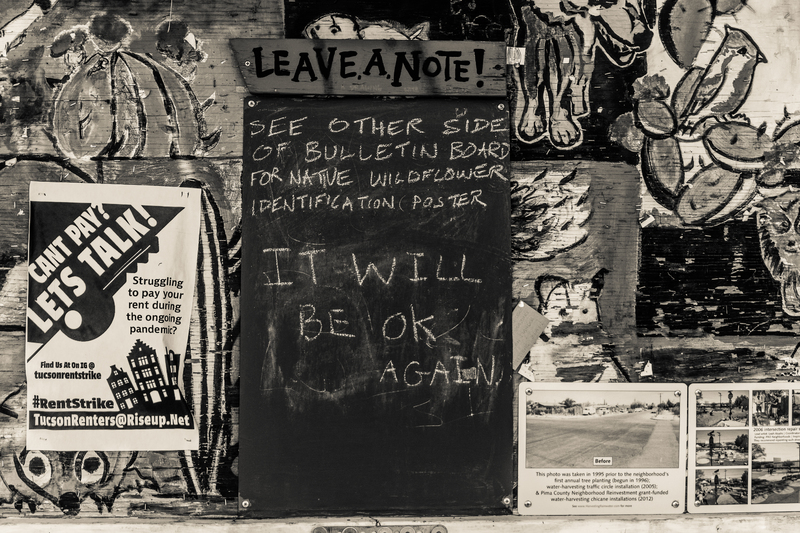 LEAVE.A.NOTE!
SEE OTHER SIDE
OF BULLETIN BOARD
FOR NATIVE WILDFLOWER
IDENTIFICATION POSTER
IT WILL
BE OK
AGAIN
CANT PAY?
LETS TALK!
Struggling
to pay your
rent during
the ongoing
pandemic?
Find Us At On IG @
tucsonrentstrike
#RentStrike
TucsonRenters@Riseup.Net
Before
This photo was taken in 1995 prior to the neighborhood's
first annual tree planting (begun in 1996);
water-harvesting traffic circle installation (2005),
& Pima County Neighborhood Reinvestment grant-funded
water-harvesting chicane installations (2012)